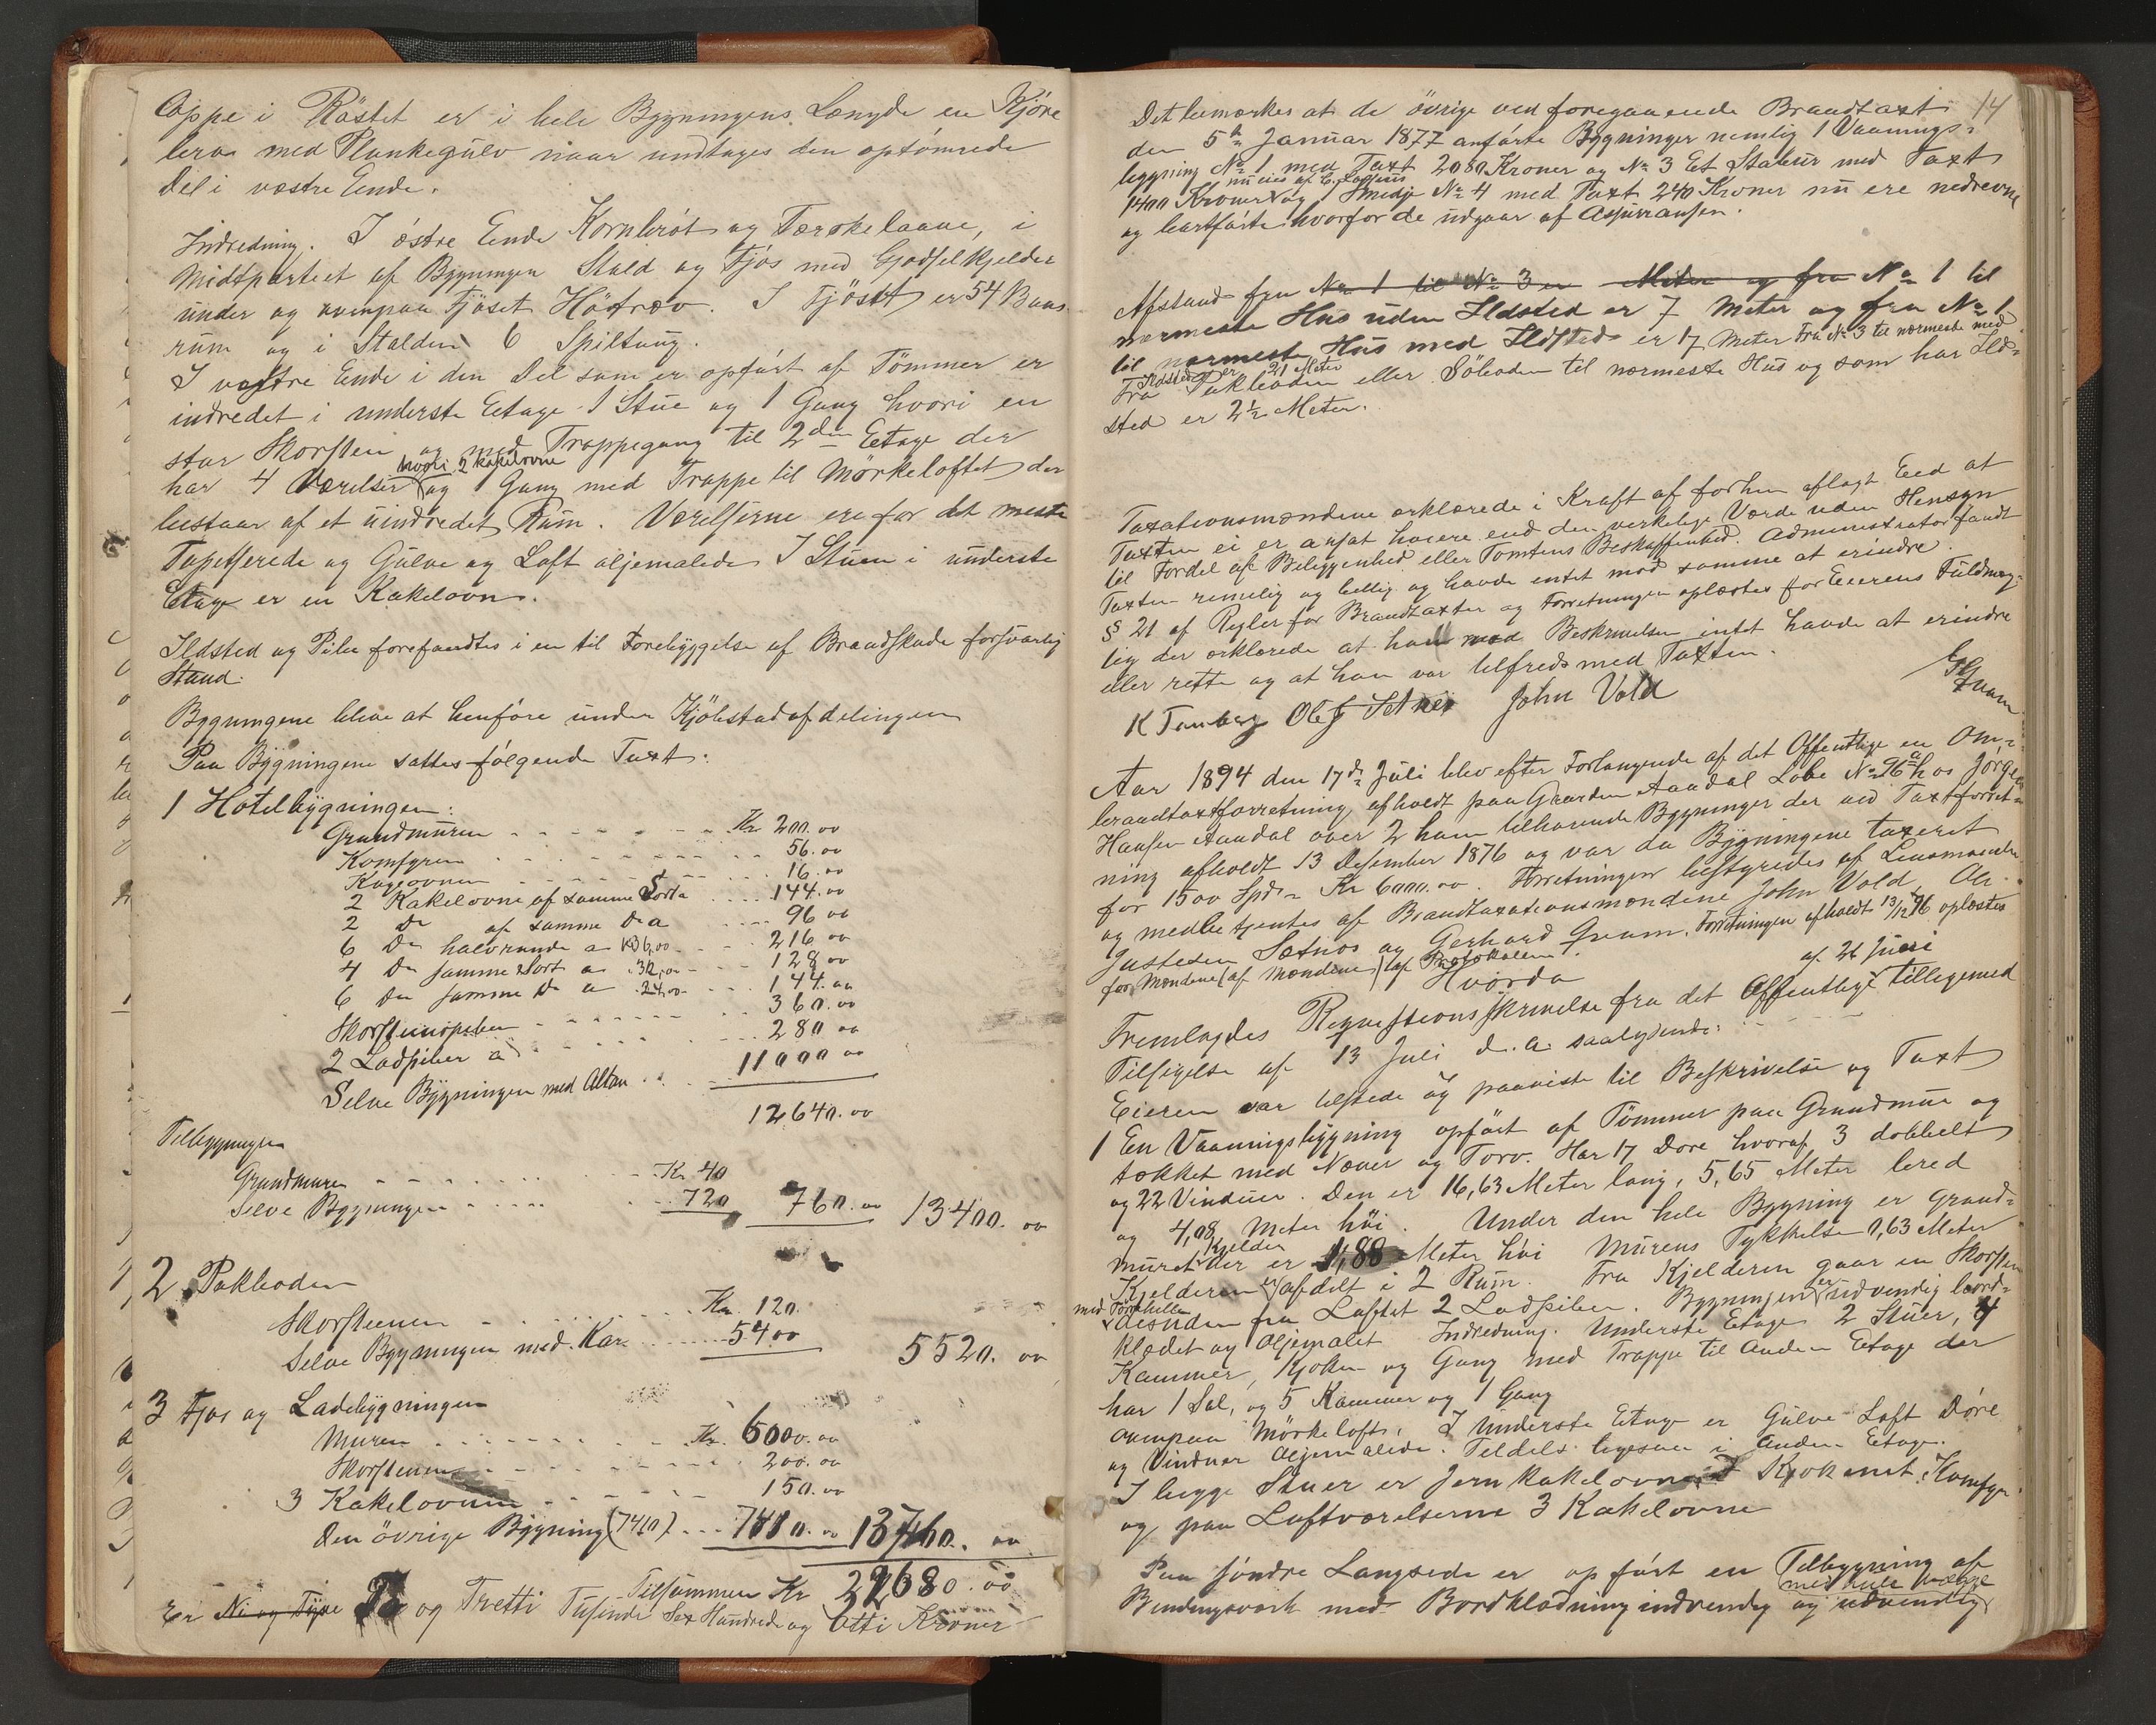 Oppe i Röstet er i hele Bygningens Længde en Kjöre
bro med Plankegulv naar undtages den optömrede
Del i vestre Ende.
Indredning. I östre Ende Kornbröt og Tærskelaave, i
Midtpartiet af Bygningen Stald og Fjös med Gjödselkjelder
under og ovenpaa Fjöset Hötrov. I Fjöset er 54 Baas
rum og i Stalden 6 Spiltaug.
I vestre Ende i den Del som er opfört af Tömmer er
indredet i underste Etage 1 Stue og 1 Gang hvori en
stor Skorsten og med Trappegang til 2den Etage der
hvori 2 kakelovne
har 4 Værelser og 1 Gang med Trappe til Mörkeloftet der
bestaar af et uindredet Rum. Værelserne ere for det meste
Tapetserede og Gulve og Loft oljemalede I Stuen i underste
Etage er en Kakelovn.
Ildsted og Piber forefandtes i en til Forebyggelse af Brandskade forsvarlig
Stand.
Bygningene blive at henföre under Kjöbstadafdelingen
Paa Bygningene sattes fölgende Taxt:
1 Hotelbygningen:
Grundmuren Kr 200.00
Komfyren 56.00
Kogeovnen 16.00
2 Kakelovne af samme Sort a 144.00
2 Do af samme Do a 96 00
6 Do halvrunde a Kr 36,00 216 00
4 Do samme Sort a 32,00 128 00
6 Do samme Do a 24,00 144.00
Skorstenspiben 360.00
2 Ladpiber a 280 00
Selve Bygningen med Altan 11000 00
12640.00
Tilbygningen
Grundmuren Kr 40
Selve Bygningen 720 760.00 13400.00
2 Pakboden
Skorstenen Kr. 120.
Selve Bygningen med Kar 5400 5520.00
3 Fjös og Ladebygningen
Muren Kr. 6000.00
Skorstenen 200.00
3 Kakelovne 150.00
Den övrige Bygning (7410) 7410.00 13760.00
Tilsammen Kr 32680.00
Er Ni og Tyve To og Tretti Tusinde Sex Hundrede og Otti Kroner
14
Det bemærkes at de övrige ved foregaaende Brandtaxt
den 5te Januar 1877 anförte Bygninger nemlig 1 Vaanings-
bygning No 1 med Taxt 2080 Kroner og No 3 Et Stabur med Taxt
1400 Kroner og Smedje No 4 med Taxt 240 Kroner nu ere nedrevne
og bortförte hvorfor de udgaar af Assurransen.
Afstand fra No 1 til No 3 er Meter og fra No 1 til
nærmeste Hus uden Ildsted er 7 Meter og fra No 1
til nærmeste Hus med Ildsted er 17 Meter Fra No 3 til nærmeste med
Ildsted er 21 Meter
Fra Pakboden eller Söboden til nærmeste Hus og som har Ild-
sted er 2½ Meter.
Taxationsmændene erklærede i Kraft af forhen aflagt Eed at
Taxten ei er ansat høiere end den virkelige Værde uden Hensyn
til Fordel af Beliggenhed eller Tomtens Beskaffenhed. Administrator fandt
Taxten rimelig og billig og havde intet mod samme at erindre.
§ 21 af Regler for Brandtaxter og Forretningen oplæstes for Eierens Fuldmæg-
tig der erklærede at han mod Beskrivelsen intet havde at erindre
eller rette og at han var tilfreds med Taxten.
K Tomberg Ole J Setnes John Vold G Gram
Aar 1894 den 17de Juli blev efter Forlangende af det Offentlige en Om-
brandtaxtforretning afholdt paa Gaarden Aandal Löbe No 96a hos Jörgen
Hansen Aandal over 2 ham tilhørende Bygninger der ved Taxtforret-
ning afholdt 13 Desember 1876 og var da Bygningene taxeret
for 1500 Spd = Kr 6000.00. Forretningen bestyredes af Lensmanden
og medbetjentes af Brandtaxationsmændene John Vold, Ole
Justesen Sætnes og Gerhard Gram. Forretningen afholdt 13/12 76 oplæstes
for Mændene af Protokolen.
Hvorda
af 26 Juni
Fremlagdes Reqvisitionsskrivelse fra det Offentlige tilligemed
Tilsigelse af 13 Juli d. A. saalydende:
Eieren var tilstede og paaviste til Beskrivelse og Taxt
1 En Vaaningsbygning opført af Tömmer paa Grundmur og
tækket med Næver og Torv. Har 17 Döre hvoraf 3 dobbelt
og 22 Vinduer. Den er 16,63 Meter lang, 5,65 Meter bred
og 4,08 Meter höi. Under den hele Bygning er Grund-
muret Kjelder der er 1,88 Meter höi Murens Tykkelse 0,63 Meter
Kjelderen er afdelt i 2 Rum. Fra Kjelderen gaar en Skorsten
med Förskille
desuden fra Loftet 2 Ladpiber. Bygningen er udvendig bord-
klædet og Oljemalet Indredning. Underste Etage 2 Stuer, 4
Kammer, Kjöken og Gang med Trappe til Anden Etage der
har 1 Sal, og 5 Kammer og 1 Gang
ovenpaa Mörkelofts. I Underste Etage er Gulve Loft Döre
og Vinduer Oljemalede. Tildels ligesaa i Anden Etage.
I begge Stuer er Jernkakelovne i Kjökenet Komfyr
og paa Loftværelserne 3 Kakelovne
Paa söndre Langside er opfört en Tilbygning af
med hule vægge
Bindingsverk med Bordklædning indvendig og udvendig